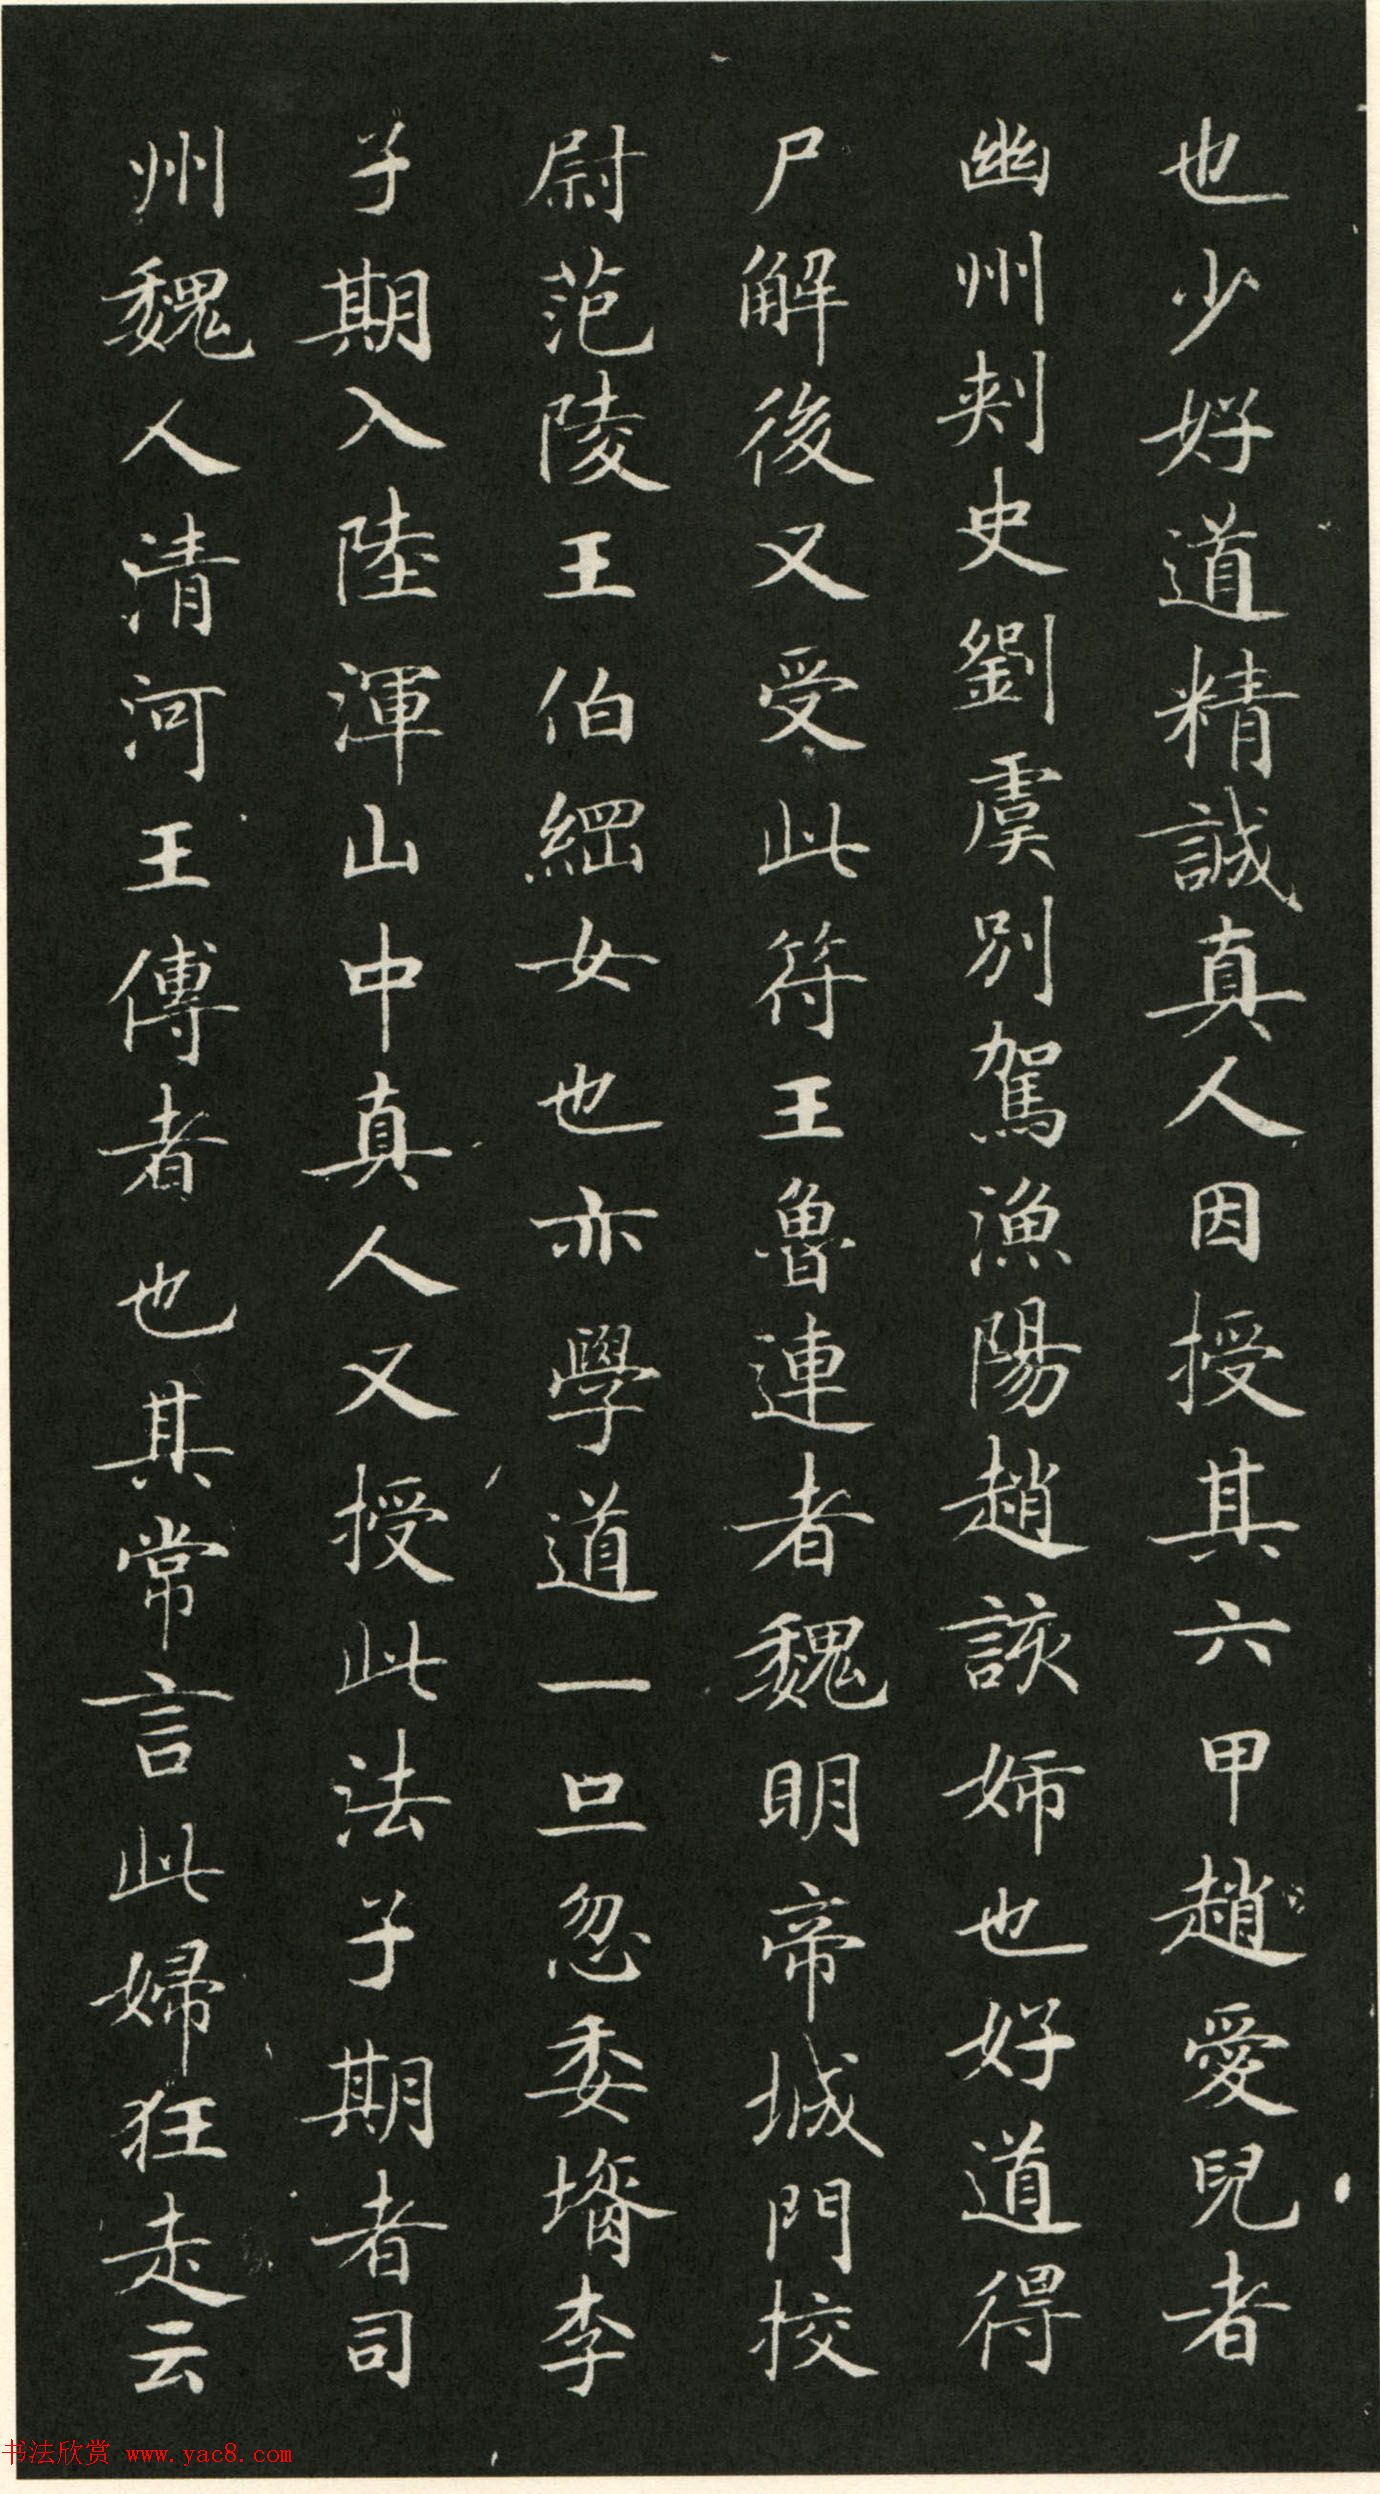 也少好道精誠真人因授其六甲趙愛兒者
幽州刾史劉虞別駕漁陽趙該姉也好道得
尸解後又受此符王魯連者魏明帝城門挍
尉范陵王伯綱女也亦學道一旦忽委壻李
子期入陸渾山中真人又授此法子期者司
州魏人清河王傅者也其常言此婦狂走云
书法欣赏 www.yac8.com